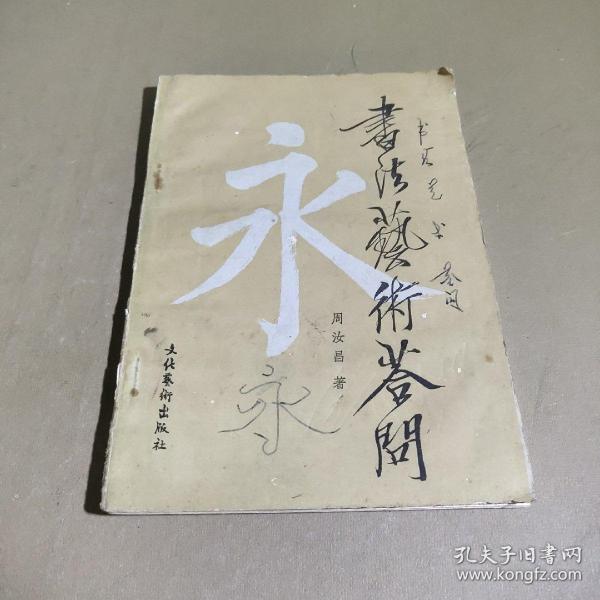 書法藝術答問
永
周汝昌 著
永
文化藝術出版社
孔夫子旧書网
www.kongfz.com